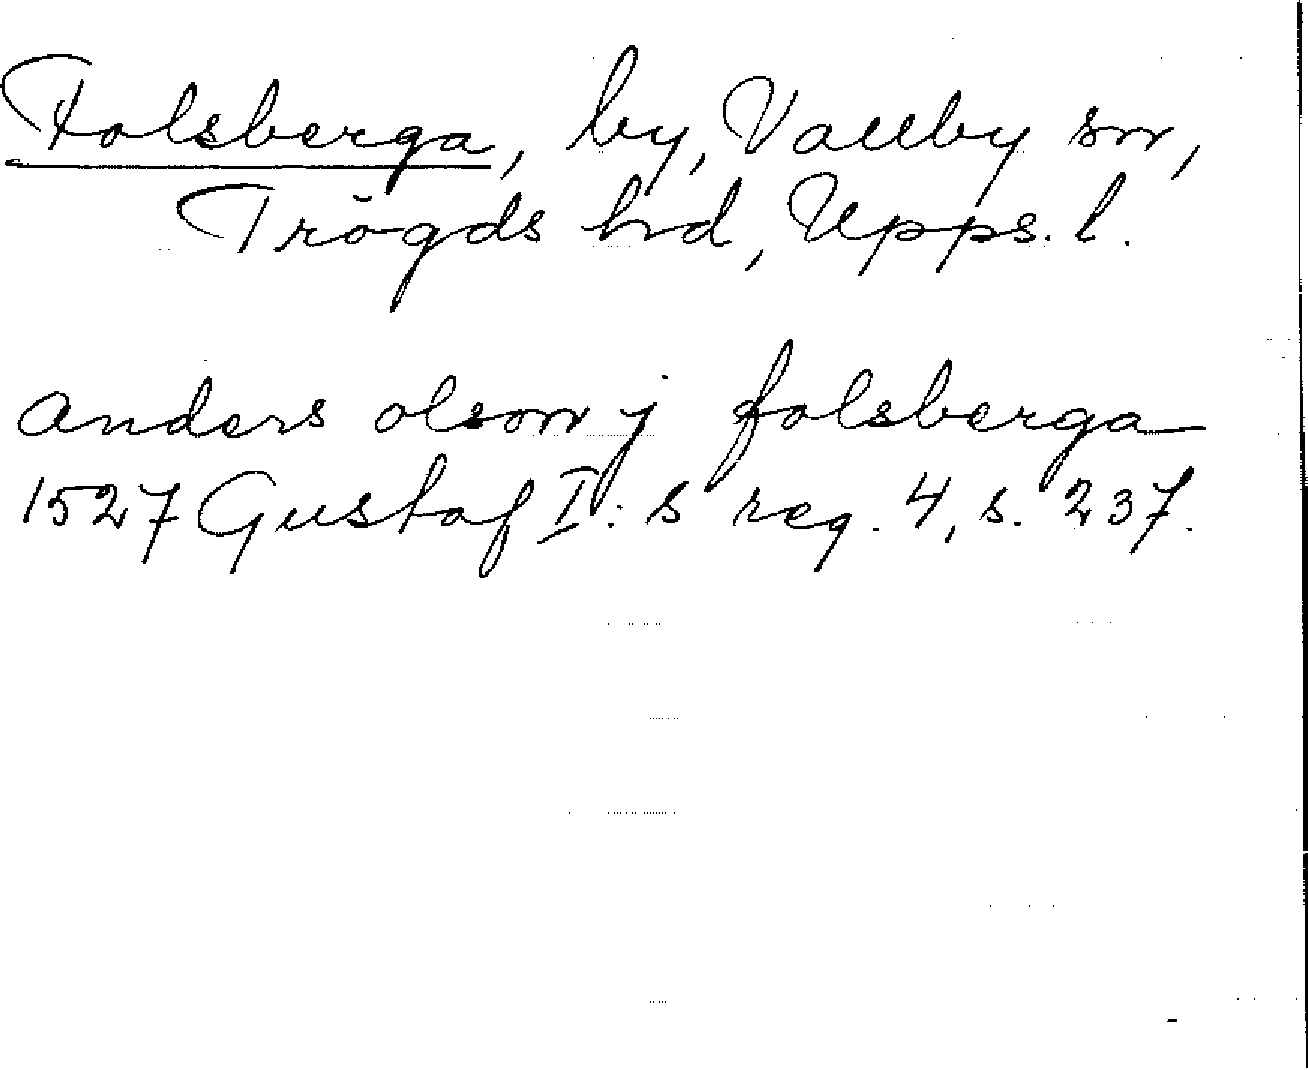 Folsberga, by, Vallby sn,
Trögds hd, Upps. l.
Anders olson j folsberga
1527 Gustaf I:s reg. 4, s. 237.